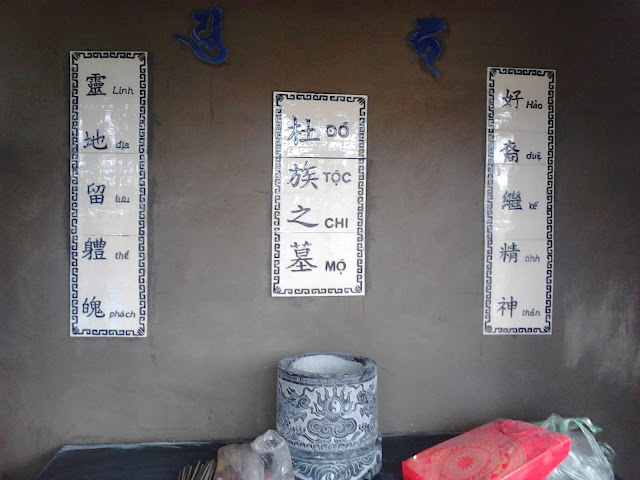 靈 Linh
地 địa
留 lưu
軆 thể
魄 phách
杜 ĐỖ
族 TỘC
之 CHI
墓 MỘ
好 Hảo
裔 duệ
繼 kế
精 tinh
神 thần